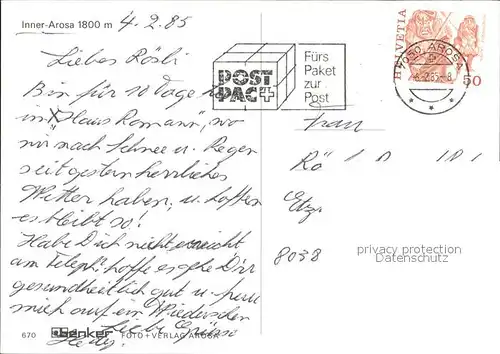 Inner-Arosa 1800 m 4.2.85
Liebes Rösli
Bin für 10 Tage hier
in "Haus Romann", wo
wir nach Schnee u. Regen
seit gestern herrliches
Wetter haben, u. hoffen
es bleibt so!
Habe Dich nicht erreicht
am Teleph. hoffe es gehe Dir
gesundheitlich gut u. freue
mich auf ein Wiedersehen
Liebe Grüsse
Hedy.
POST
PAC+
Fürs
Paket
zur
Post
HELVETIA
50
7050 AROSA
Frau
Rö
Etz
8038
privacy protection
Datenschutz
670 FOTO+VERLAG AROSA